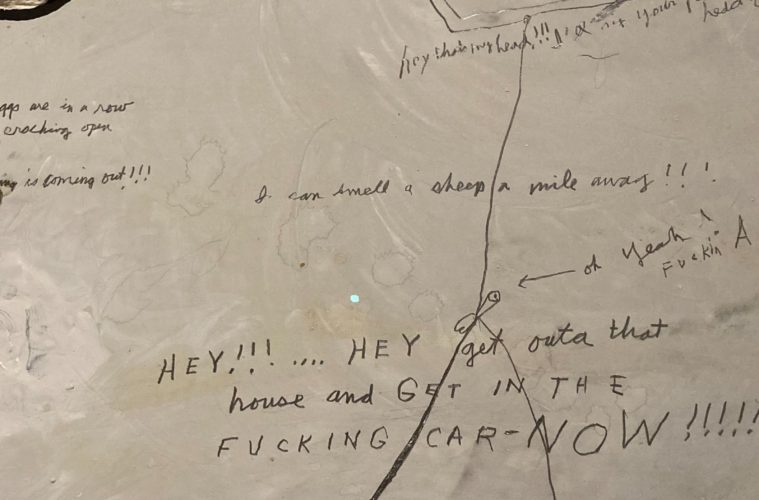 hey thats my head!!! your
head
are in a row
cracking open
is coming out!!!
I can smell a sheep a mile away!!!
oh yeah!
FUCKIN A
HEY!!! .... HEY get outa that
house and GET IN THE
FUCKING CAR-NOW!!!!!